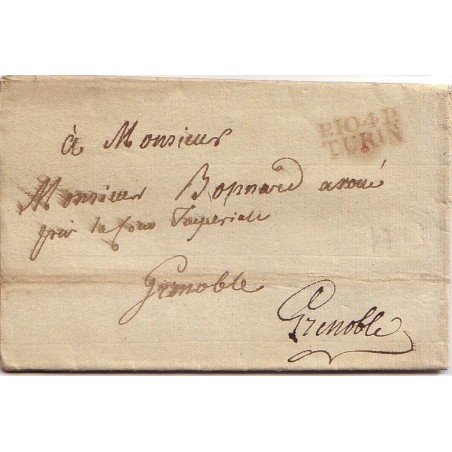 P.104.P.
TURIN
à Monsieur
Monsieur Bonnard avoué
près la Cour Impériale
Grenoble
Grenoble